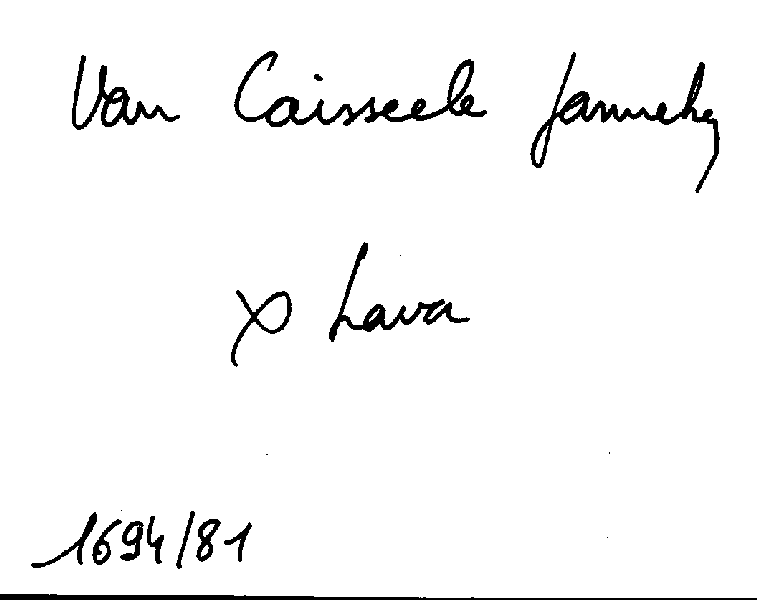 Van Caisseele Janneke
x Lava
1694/81